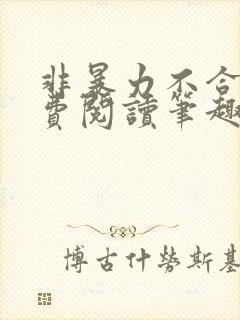 非暴力不合
費閱讀筆趣
博古什勞斯基